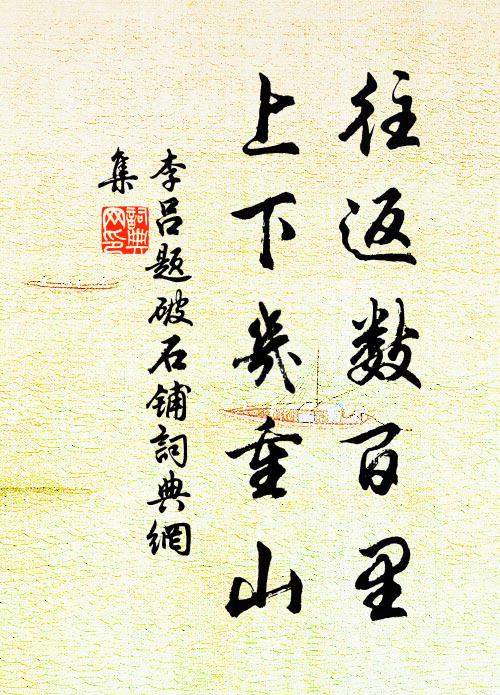 往返数百里
上下几重山
李吕题破石铺詞典網
集
詞典网印